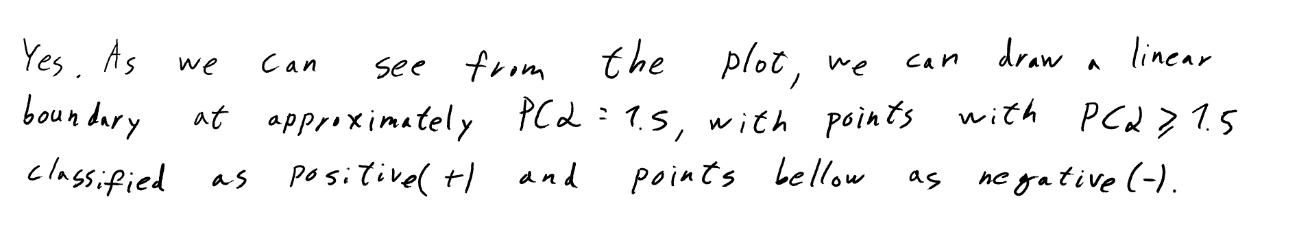 Yes. As we can see from the plot, we can draw a linear
boundary at approximately PC2 = 1.5, with points with PC2 ⩾ 1.5
classified as positive(+) and points bellow as negative(-).